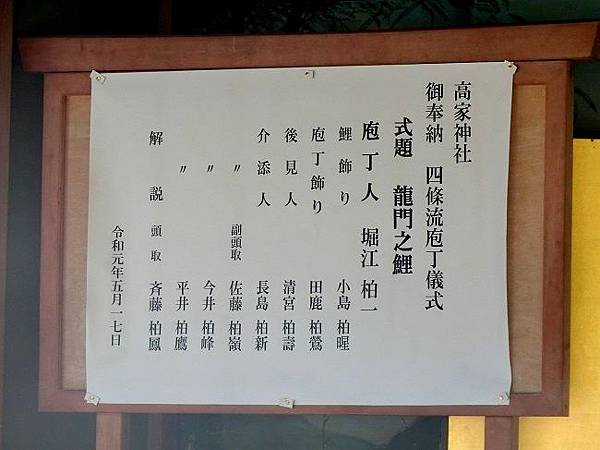 高家神社
御奉納 四條流庖丁儀式
式題 龍門之鯉
庖丁人 堀江 柏一
鯉飾り 小島 柏暒
庖丁飾り 田鹿 柏鶯
後見人 清宮 柏壽
介添人 長島 柏新
〃 副頭取 佐藤 柏嶺
〃 今井 柏峰
〃 平井 柏鷹
解説 頭取 斉藤 柏鳳
令和元年五月一七日